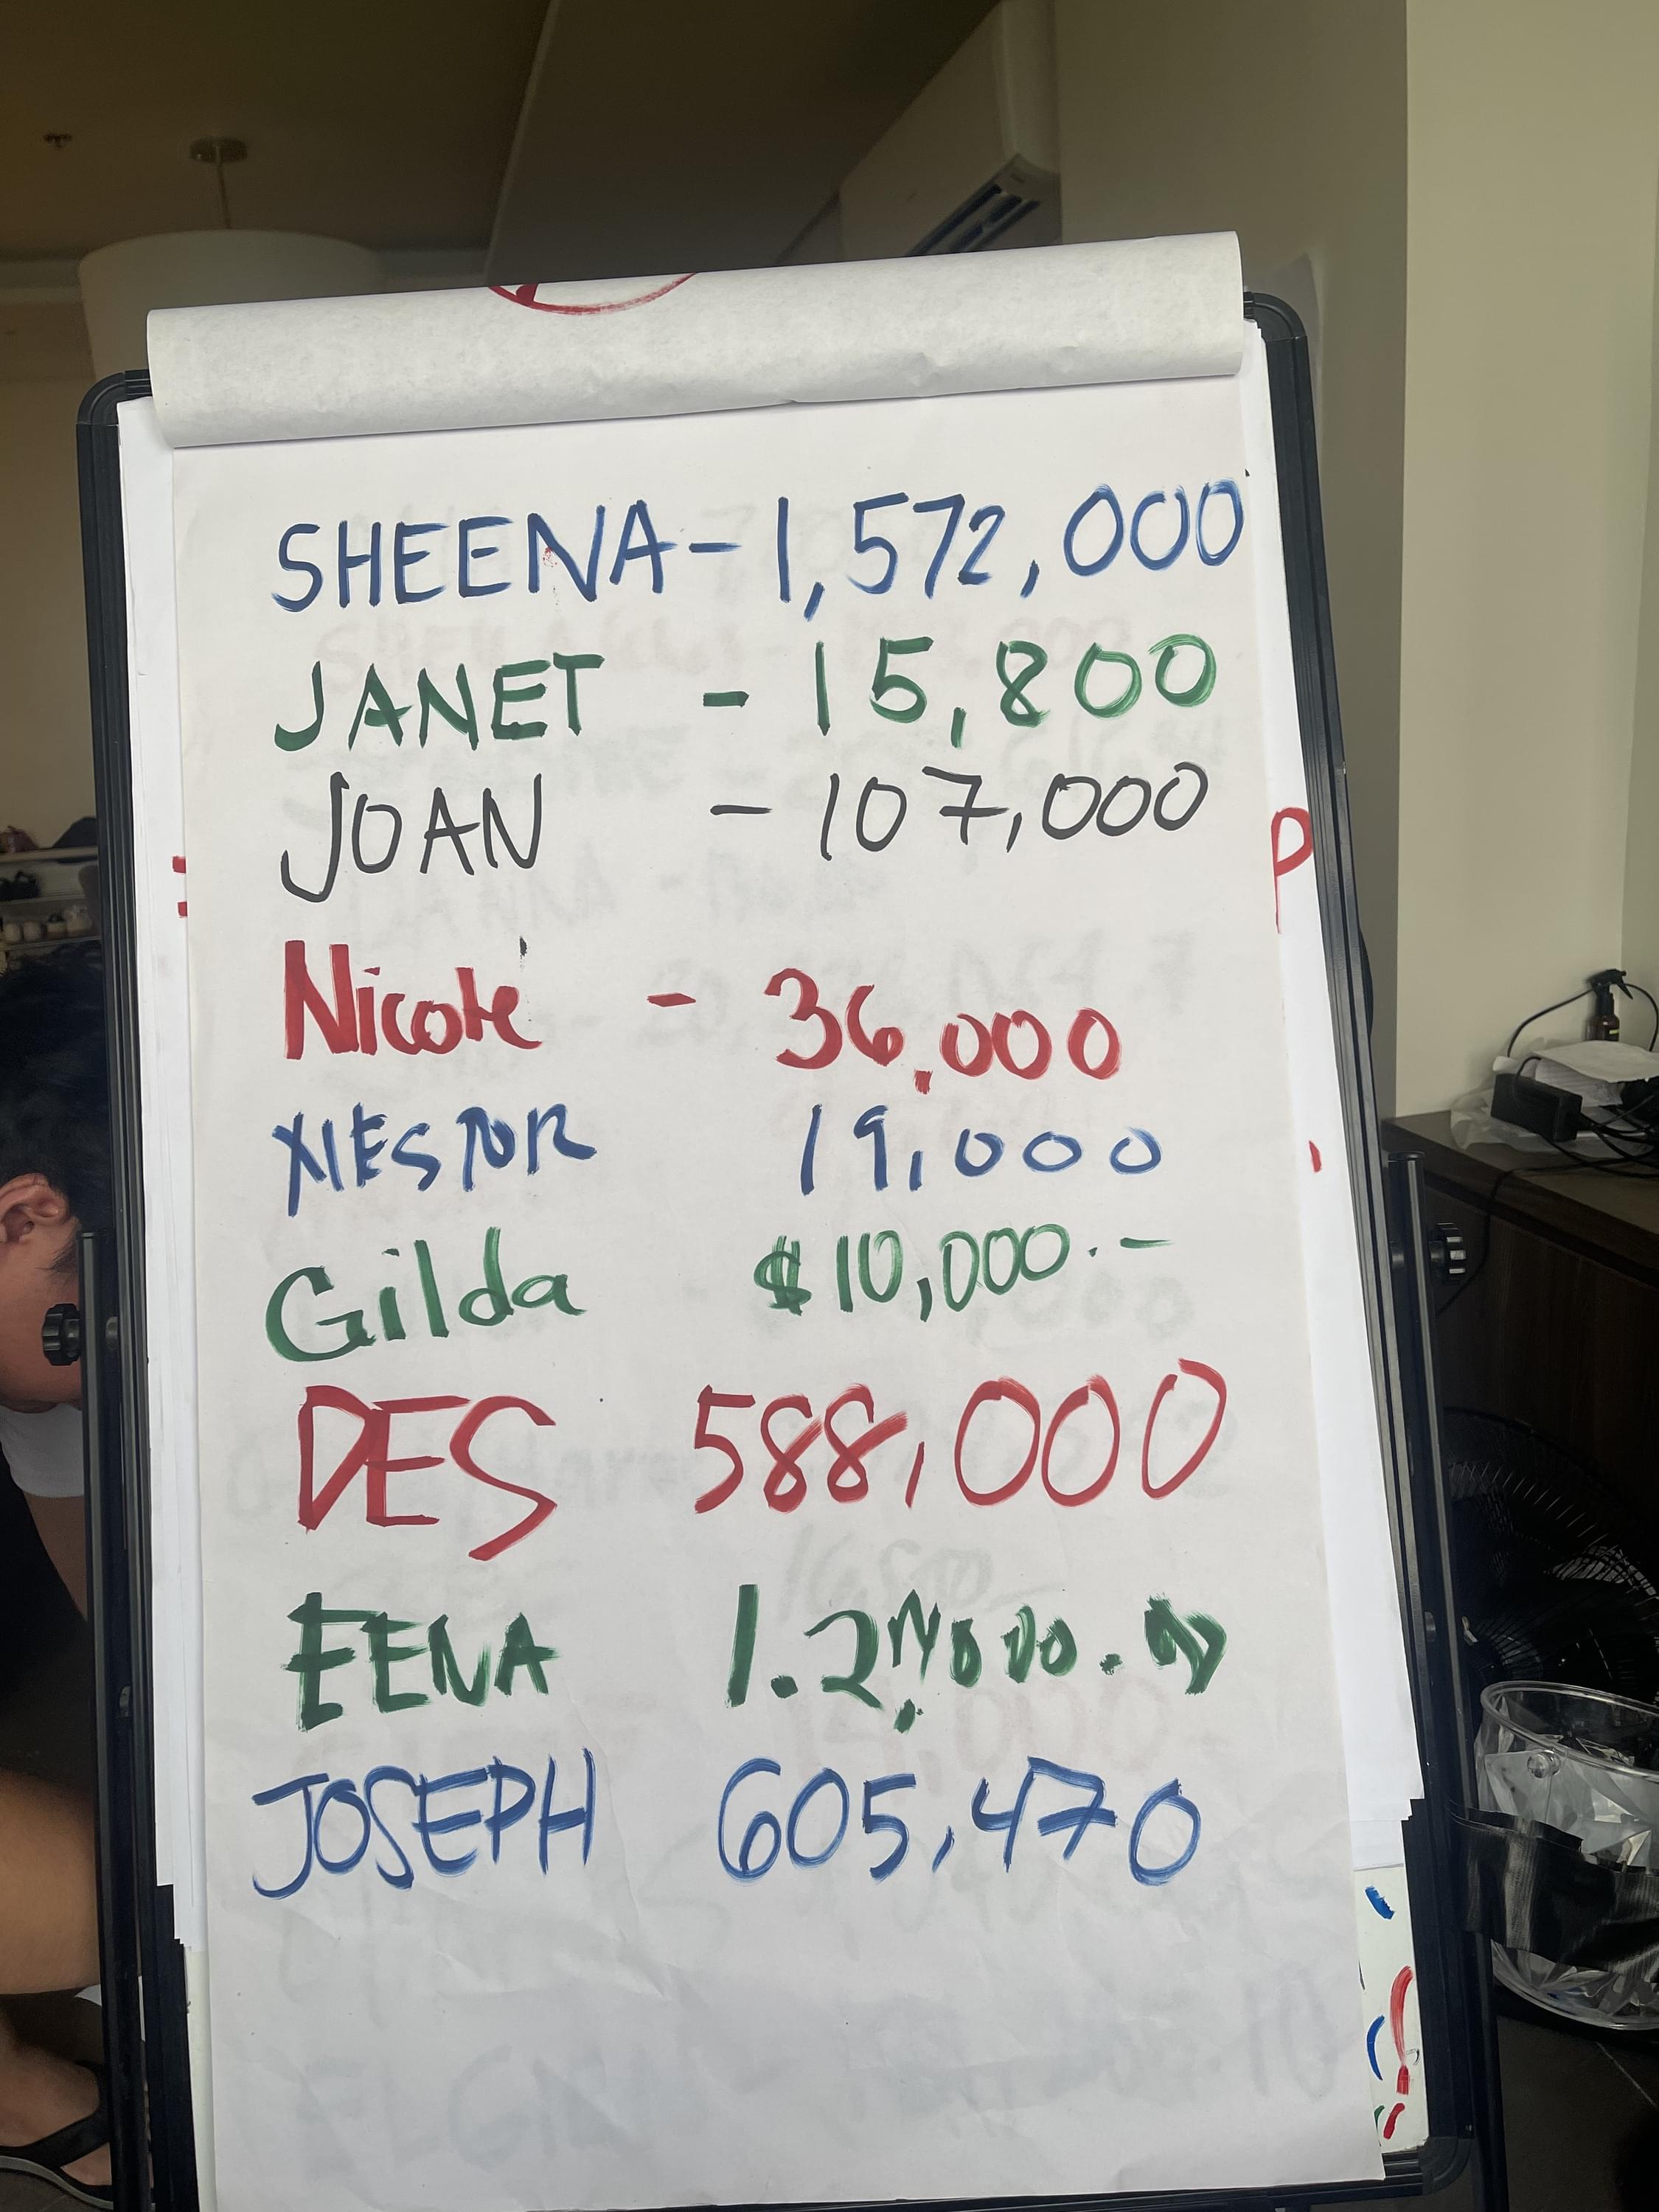 SHEENA - 1,572,000
JANET - 15,800
JOAN - 107,000
Nicole - 36,000
NESTOR 19,000
Gilda $10,000.-
DES 588,000
EENA
JOSEPH 605,470
P